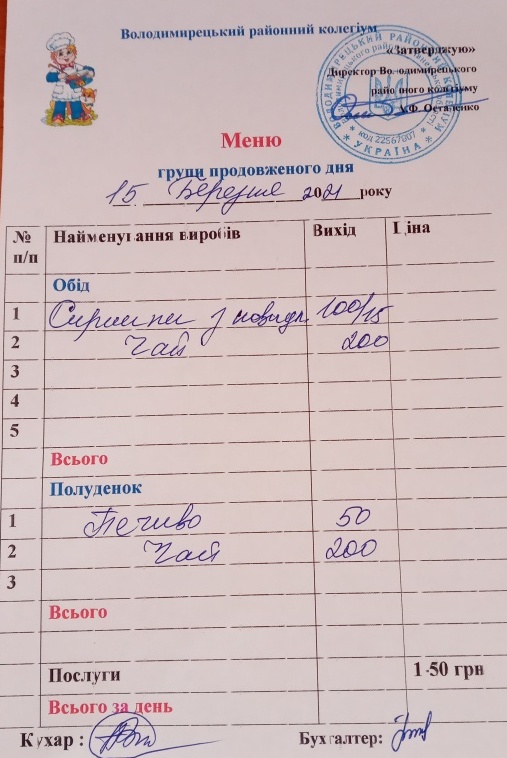 Володимирецький районний колегіум
«Затверджую»
Директор Володимирецького
районного колегіуму
А.Ф. Остапенко
ВОЛОДИМИРЕЦЬКИЙ РАЙОННИЙ КОЛЕГІУМ
* код 22567007 *
* УКРАЇНА *
Меню
групи продовженого дня
15 Березня 2021 року
№ п/п Найменування виробів Вихід Ціна
Обід
1 Сирники з повидл. 100/15
2 Чай 200
3
4
5
Всього
Полуденок
1 Печиво 50
2 Чай 200
3
Всього
Послуги 1-50 грн
Всього за день
Кухар : Бухгалтер: